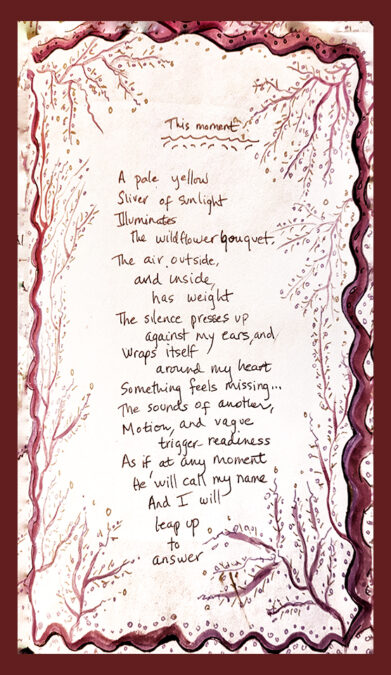 This moment
A pale yellow
Sliver of sunlight
Illuminates
the wildflower bouquet.
The air outside,
and inside,
has weight
The silence presses up
against my ears, and
wraps itself
around my heart
Something feels missing...
The sounds of another,
Motion, and vague
trigger-readiness
As if at any moment
He will call my name
And I will
leap up
to
answer